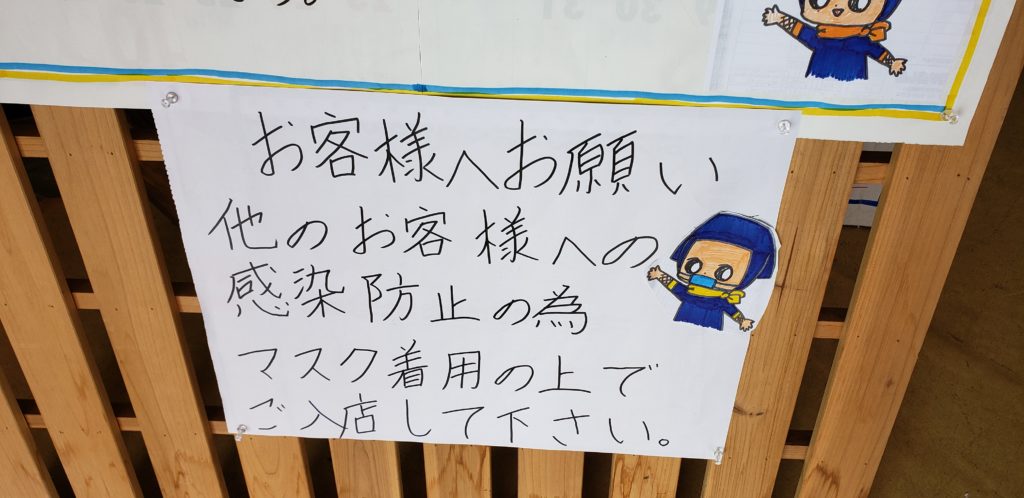 お客様へお願い
他のお客様への
感染防止の為
マスク着用の上で
ご入店して下さい。